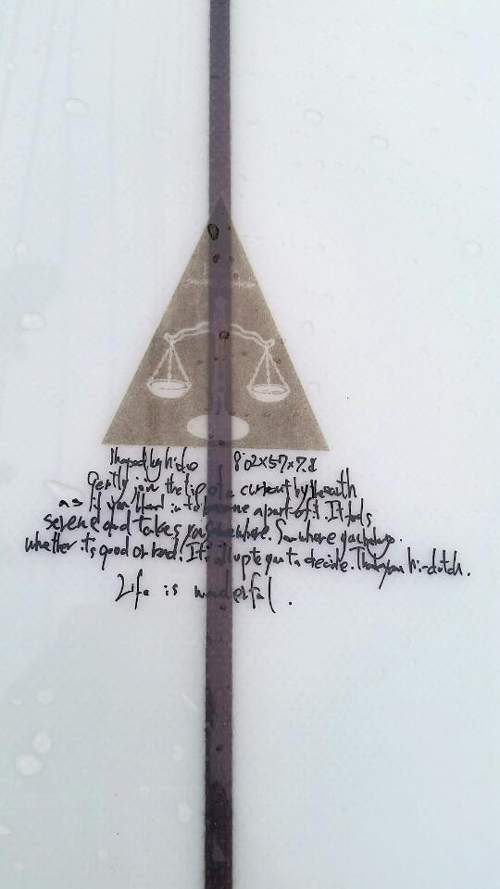 Shaped by hideo 802×57×7.8
Gently join the tip of a current by the
as if you blend into become a part of it. It feels
serene and takes you somewhere. Somewhere
whether it's good or bad. It's all up to you to decide. Thank you
Life is wonderful.